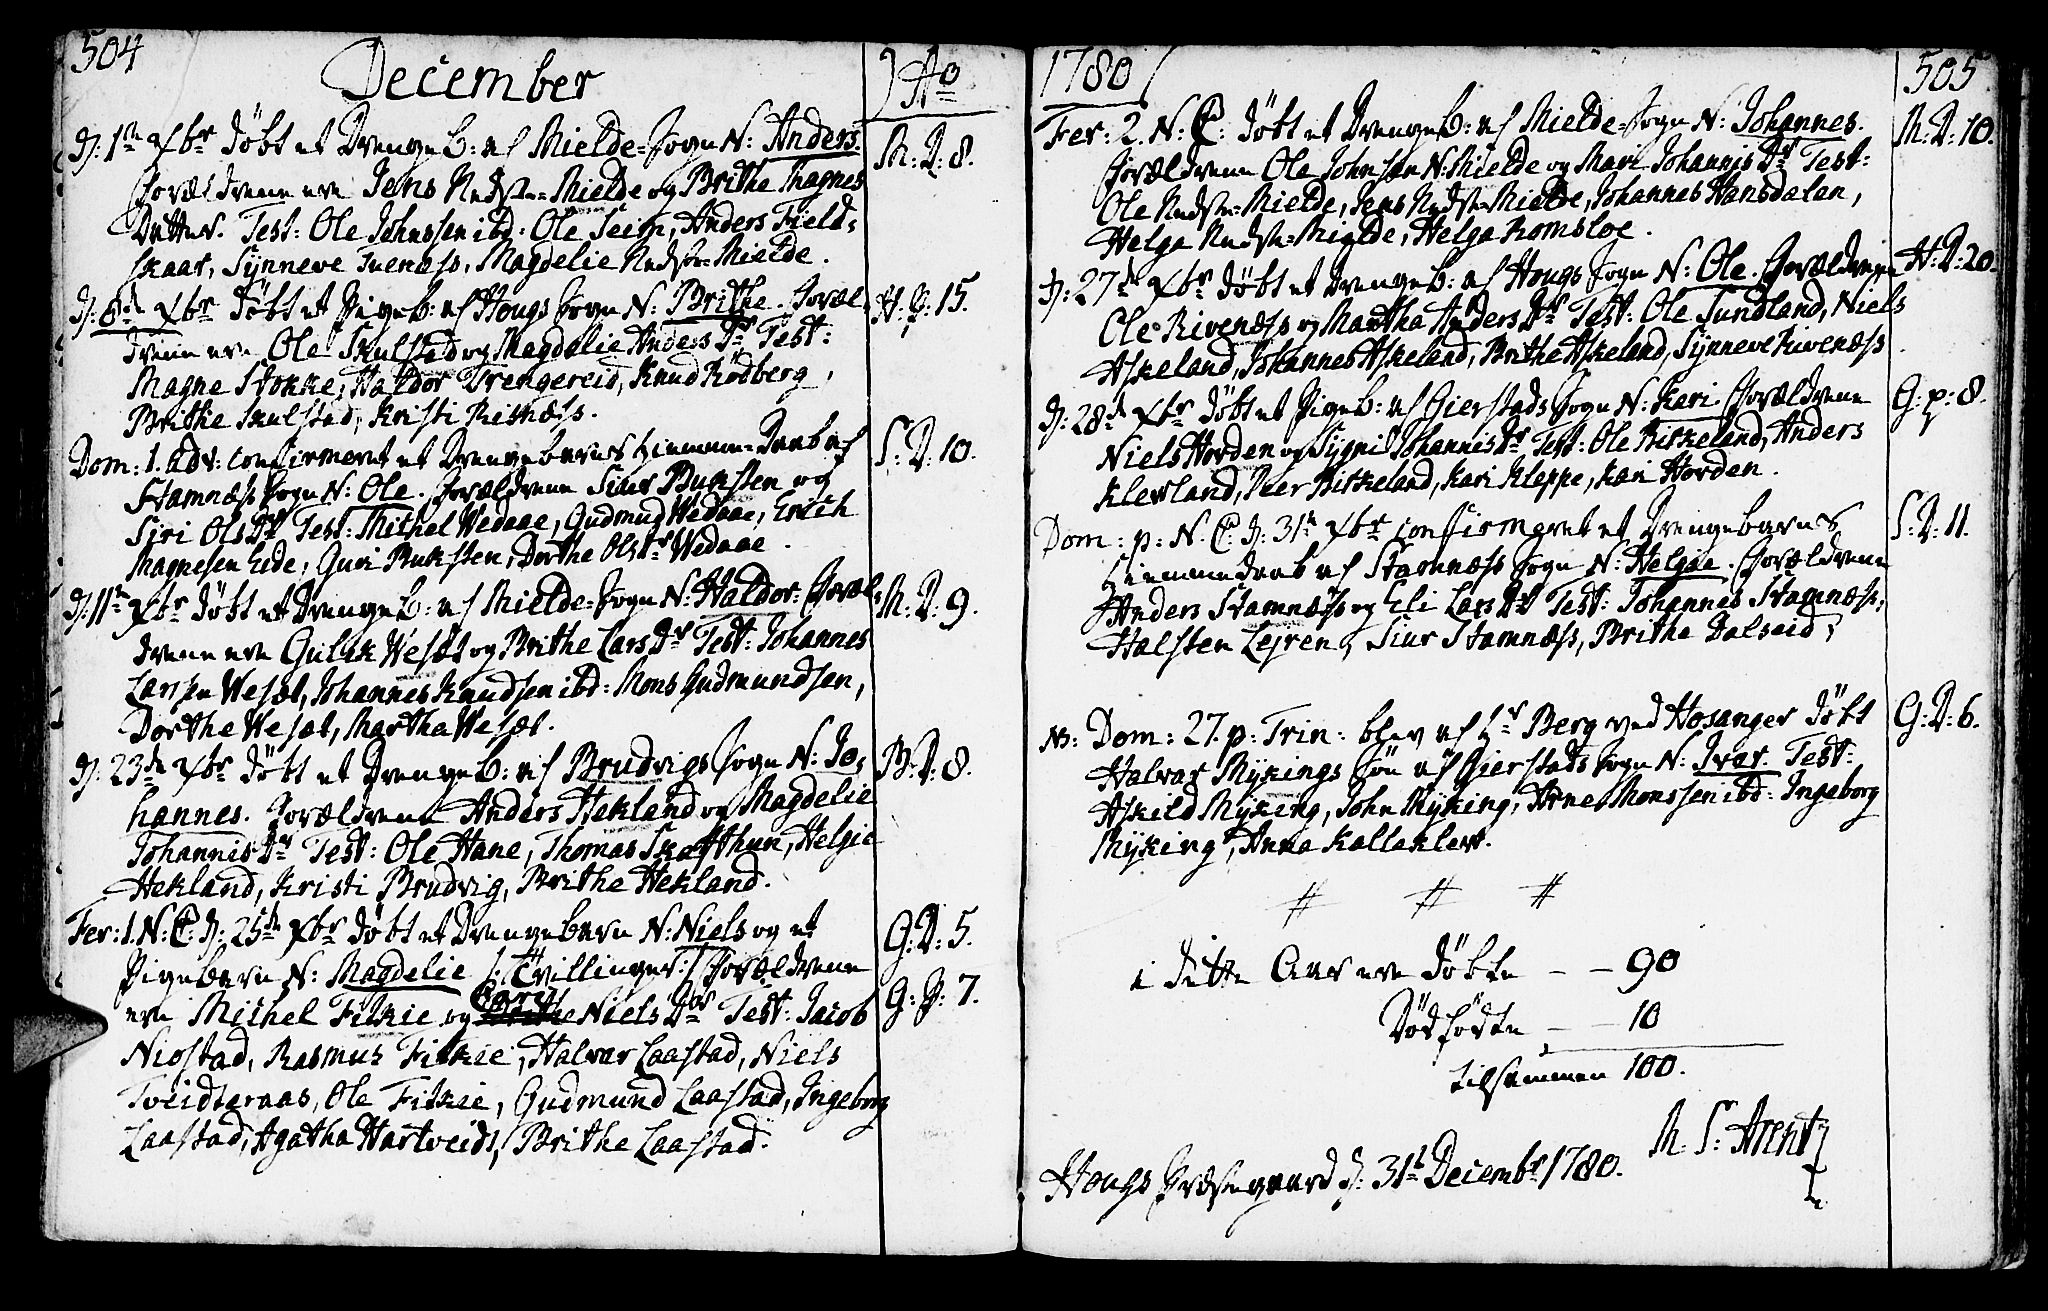 504
December
Ao
D: 1te Xbr döbt et Drengeb: af Mielde-Sogn N: Anders.
M: D: 8.
Forældrene ere Jens Nedste-Mielde og Brithe Magnes
Datter. Test: Ole Johnssen ibd: Ole Seim, Anders Field-
skaar, Synneve Tuenæss, Magdelie Nedste-Mielde.
D: 8de Xbr döbt et Pigeb: af Hougs Sogn N: Brithe. Foræl-
H: P: 15.
drene ere Ole Skulstad og Magdelie Anders Dr Test:
Magne Stokke, Haldor Trengereid, Knud Rödberg,
Brithe Skulstad, Kristi Reisæss.
Dom: 1. Adv: confirmeret et Drengebarns Hiemme-Daab af
S: D: 10.
Stamnæss Sogn N: Ole. Forældrene Siur Buksten og
Siri Ols Dr Test: Michel Wedaae, Gudmund Wedaae, Erich
Magnesen Eide, Guri Buksten, Dorthe Olstr Wedaae.
D: 11te Xbr döbt et Drengeb: af Mielde-Sogn N: Haldor. Foræl-
M: D: 9.
drene ere Gulek Wesæt og Brithe Lars Dr Test: Johannes
Larssen Wesæt, Johannes Knudsen ibd: Mons Gudmundsen,
Dorthe Wesæt, Martha Wesæt.
D: 23de Xbr döbt et Drengeb: af Brudvigs Sogn N: Jo-
B: D: 8.
hannes. Forældrene Anders Hekland og Magdelie
Johannis Dr Test: Ole Hane, Thomas Skafthun, Helgie
Hekland, Kristi Brudvig, Brithe Hekland.
Fer: 1. N: C: D: 25de Xbr döbt et Drengebarn N: Niels og et
G: D: 5.
Pigebarn N: Magdelie /: Tvillinger :/ Forældrene
G: P: 7.
ere Michel Fitkie og Brithe Niels Dr Test: Jacob
Niostad, Rasmus Fitkie, Halvar Laastad, Niels
Tveidteraas, Ole Fitkie, Gudmund Laastad, Ingeborg
Laastad, Agatha Hartveids, Brithe Laastad.
1780
505
Fer: 2. N: C: döbt et Drengeb: af Mielde-Sogn N: Johannes.
M: D: 10.
Forældrene Ole Johnsen N: Mielde og Mari Johannis Dr Test:
Ole Nedste-Mielde, Jens Nedste-Mielde, Johannes Hansdalen,
Helga Nedste-Mielde, Helga Romsloe.
D: 27de Xbr döbt et Drengeb: af Hougs Sogn N: Ole. Forældrene
H: D: 20.
Ole Rivenæss og Martha Anders Dr Test: Ole Sundland, Niels
Askeland, Johannes Askeland, Brithe Askeland, Synneve Rivenæss
D: 28de Xbr döbt et Pigeb: af Gierstads Sogn N: Kari. Forældrene
G: p: 8.
Niels Horden og Sygni Johannis Dr Test: Ole Birkeland, Anders
Klevland, Peer Birkeland, Kari Kleppe, Kari Horden.
Dom: p: N. C: D: 31te Xbr confirmeret et Drengebarns
S: D: 11.
Hiemmedaab af Stamnæss Sogn N: Helgie. Forældrene
Anders Stamnæss og Eli Lars Dr Test: Johannes Stamnæss,
Halsten Lejren, Siur Stamnæss, Brithe Dalseid,
NB: Dom: 27. p: Trin: blev af Hr Berg ved Hosanger döbt
G: D: 6.
Halvar Mykings Sön af Gierstads Sogn N: Ivar. Test:
Askild Myking, John Myking, Arne Monssen ibd: Ingeborg
Myking, Anna Kalleklev.
# # #
i dette Aar ere döbte — — 90
Dödfödte — — 10
tilsammen 100.
M. S: Arentz
Hougs Præstegaard D: 31te Decembr 1780.